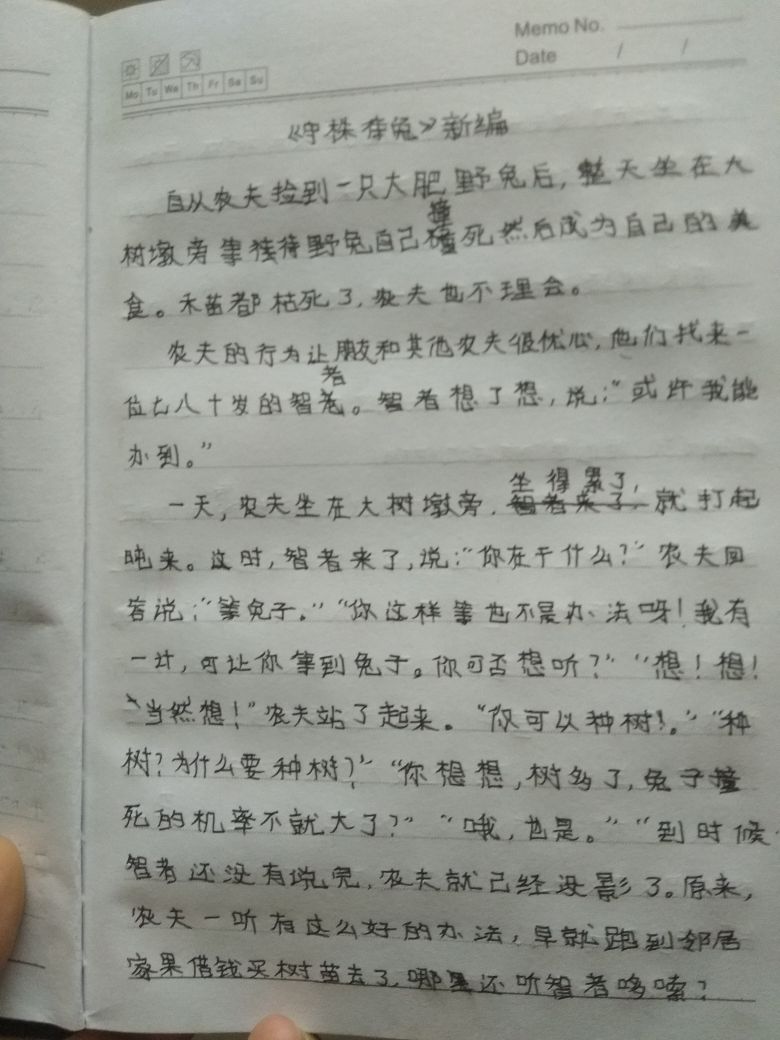 Memo No.
Date / /
Mo Tu We Th Fr Sa Su
《守株待兔》新编
自从农夫捡到一只大肥野兔后,整天坐在大
树墩旁等待野兔自己撞死然后成为自己的美
食。禾苗都枯死了,农夫也不理会。
农夫的行为让朋友和其他农夫很忧心,他们找来一
位七八十岁的智者。智者想了想,说:“或许我能
办到。”
一天,农夫坐在大树墩旁,坐得累了,就打起
盹来。这时,智者来了,说:“你在干什么?”农夫回
答说:“等兔子。”“你这样等也不是办法呀!我有
一计,可让你等到兔子。你可否想听?”“想!想!
当然想!”农夫站了起来。“你可以种树!。”“种
树?为什么要种树?”“你想想,树多了,兔子撞
死的机率不就大了?”“哦,也是。”“到时候
智者还没有说完,农夫就已经没影了。原来,
农夫一听有这么好的办法,早就跑到邻居
家果借钱买树苗去了,哪里还听智者哆嗦?